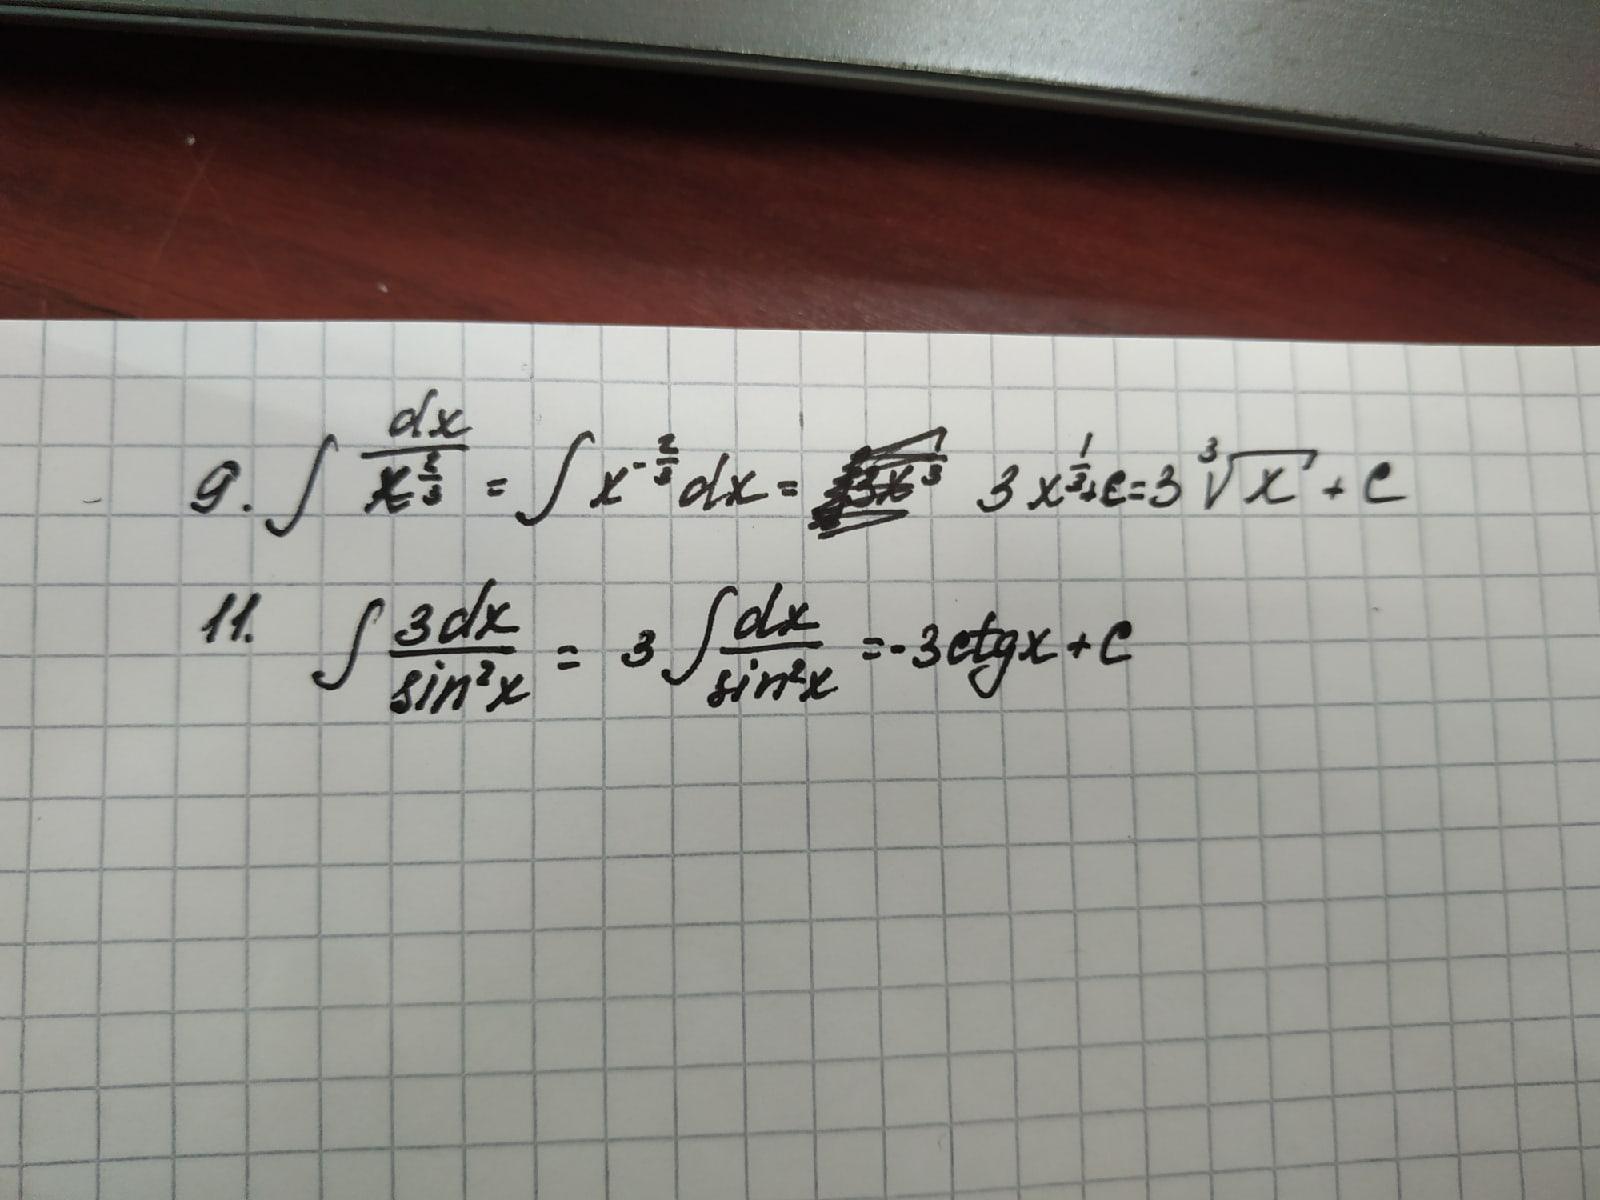 9. ∫ dx/x^(2/3) = ∫ x^(-2/3) dx = 3x^(1/3) + C = 3 ∛x + C
11. ∫ 3dx/sin²x = 3 ∫ dx/sin²x = -3ctgx + C